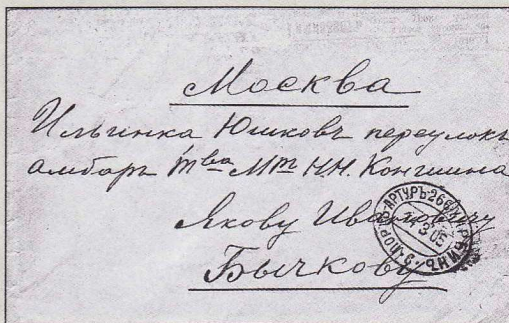 Москва
Ильинка Юшковъ переулокъ
амбаръ Т-ва М-ръ Н.Н. Коншина
Якову Ивановичу
Бычкову